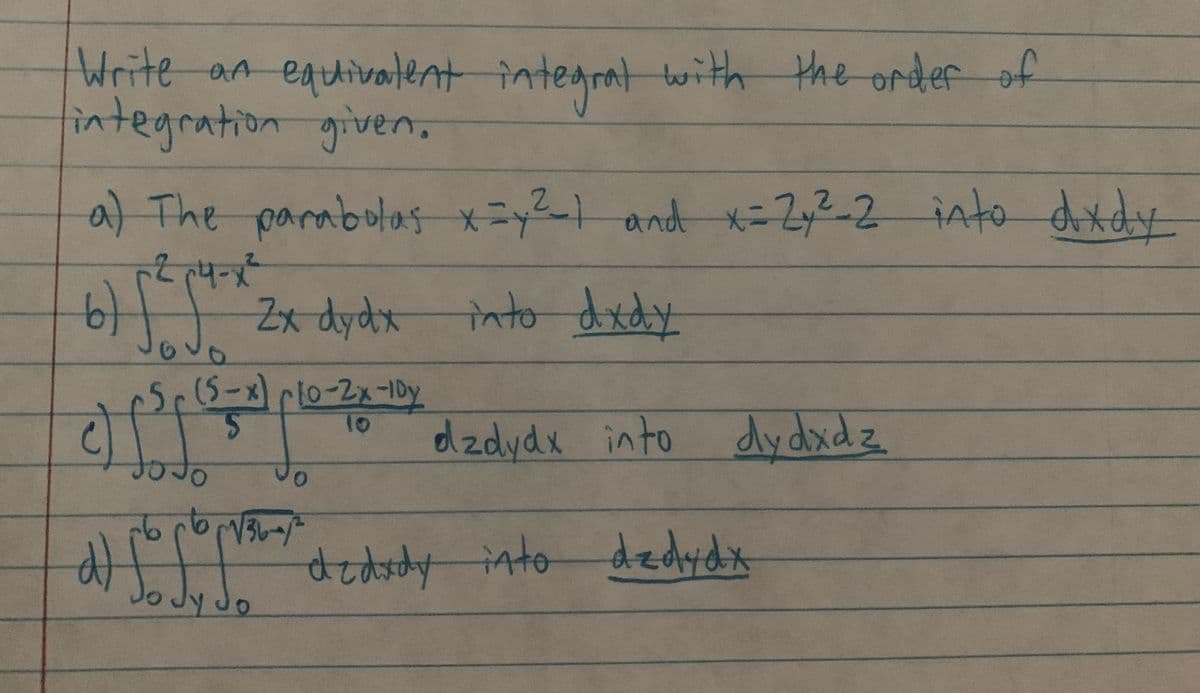 Write an equivalent integral with the order of
integration given.
a) The parabolas x=y²-1 and x=2y²-2 into dxdy
b) ∫₀² ∫₀^(4-x²) 2x dydx into dxdy
c) ∫₀⁵ ∫₀^((5-x)/5) ∫₀^((10-2x-10y)/10) dzdydx into dydxdz
d) ∫₀⁶ ∫_y^6 ∫₀^(√(36-y²)) dzdxdy into dzdydx